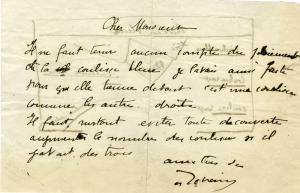 Cher Monsieur
Il ne faut tenir aucun compte du
de la coulisse bleue je l'avais ainsi faite
pour qu'elle tienne debout c'est une coulisse
comme les autres droite
Il faut surtout eviter toute decouverte
augmenter le nombre des coulisses si il
y avait des trous